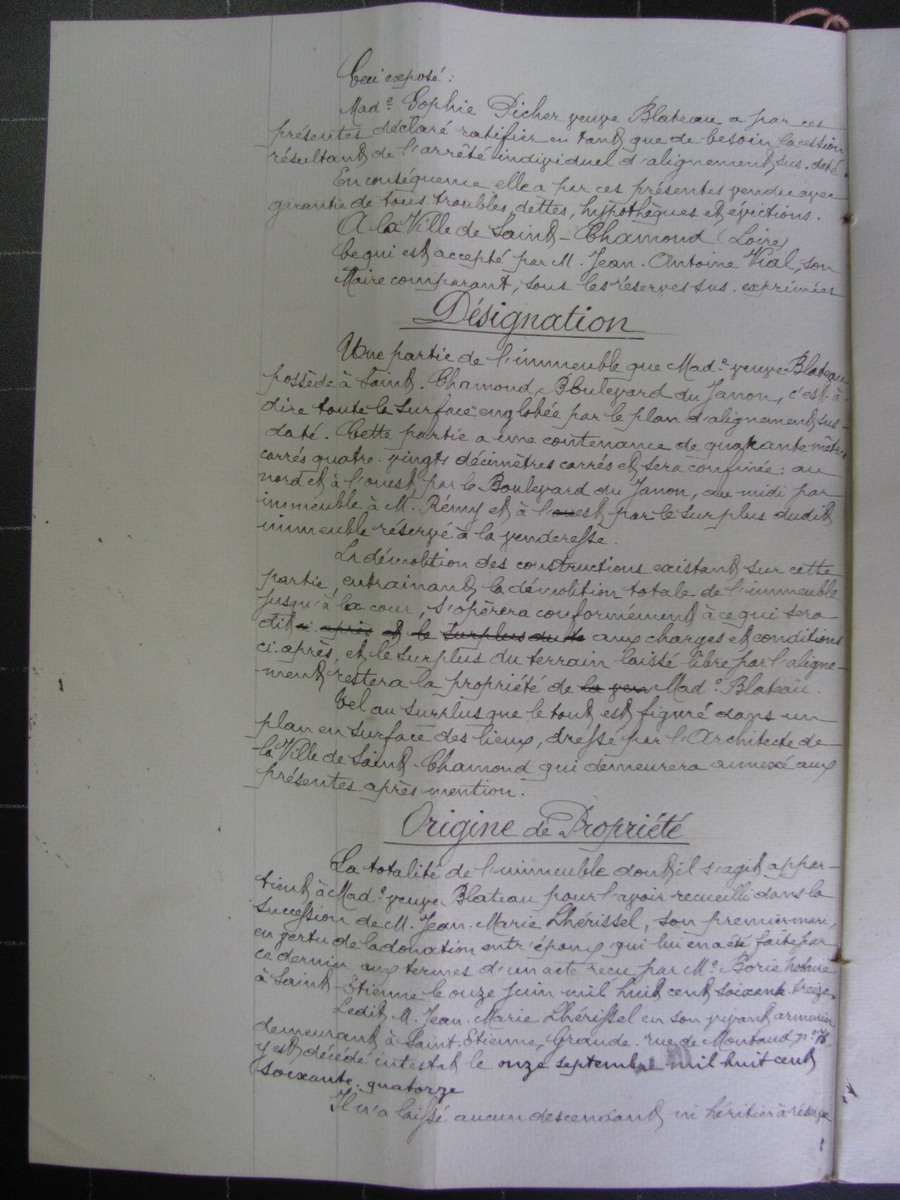 Ceci exposé :
Made Sophie Picher veuve Blateau a par ces
présentes déclaré ratifier en tant que de besoin la cession
résultant de l'arrêté individuel d'alignement sus-daté.
En conséquence elle a par ces présentes vendu avec
garantie de tous troubles, dettes, hypothèques et évictions.
A la Ville de Saint-Chamond (Loire)
Ce qui est accepté par M. Jean-Antoine Vial, son
Maire comparant, sous les réserves sus-exprimées
Désignation
Une partie de l'immeuble que Made veuve Blateau
possède à Saint-Chamond, Boulevard du Janon, c'est-à-
dire toute la surface englobée par le plan d'alignement sus-
daté. Cette partie a une contenance de quarante mètres
carrés quatre-vingts décimètres carrés et sera confinée : au
nord et à l'ouest par le Boulevard du Janon, au midi par
immeuble à M. Rémy et à l'est par le surplus dudit
immeuble réservé à la venderesse.
La démolition des constructions existant sur cette
partie, entrainant la démolition totale de l'immeuble
jusqu'à la cour, s'opèrera conformément à ce qui sera
dit ci après et le surplus du te aux charges et conditions
ci-après, et le surplus du terrain laissé libre par l'aligne-
-ment restera la propriété de la ven Made Blateau.
Tel au surplus que le tout est figuré dans un
plan en surface des lieux, dressé par l'Architecte de
la Ville de Saint-Chamond qui demeurera annexé aux
présentes après mention.
Origine de Propriété
La totalité de l'immeuble dont il s'agit appar-
tient à Made veuve Blateau pour l'avoir recueilli dans la
succession de M. Jean-Marie Lhérissel, son premier mari,
en vertu de la donation entr'époux qui lui en a été faite par
ce dernier aux termes d'un acte reçu par Me Borie notaire
à Saint-Etienne le onze juin mil huit cent soixante-treize.
Ledit M. Jean-Marie Lhérissel en son vivant armurier
demeurant à Saint-Etienne, Grande rue de Montaud no 76
y est décédé intestat le onze septembre mil huit cent
soixante-quatorze
Il n'a laissé aucun descendant ni héritier à réserve